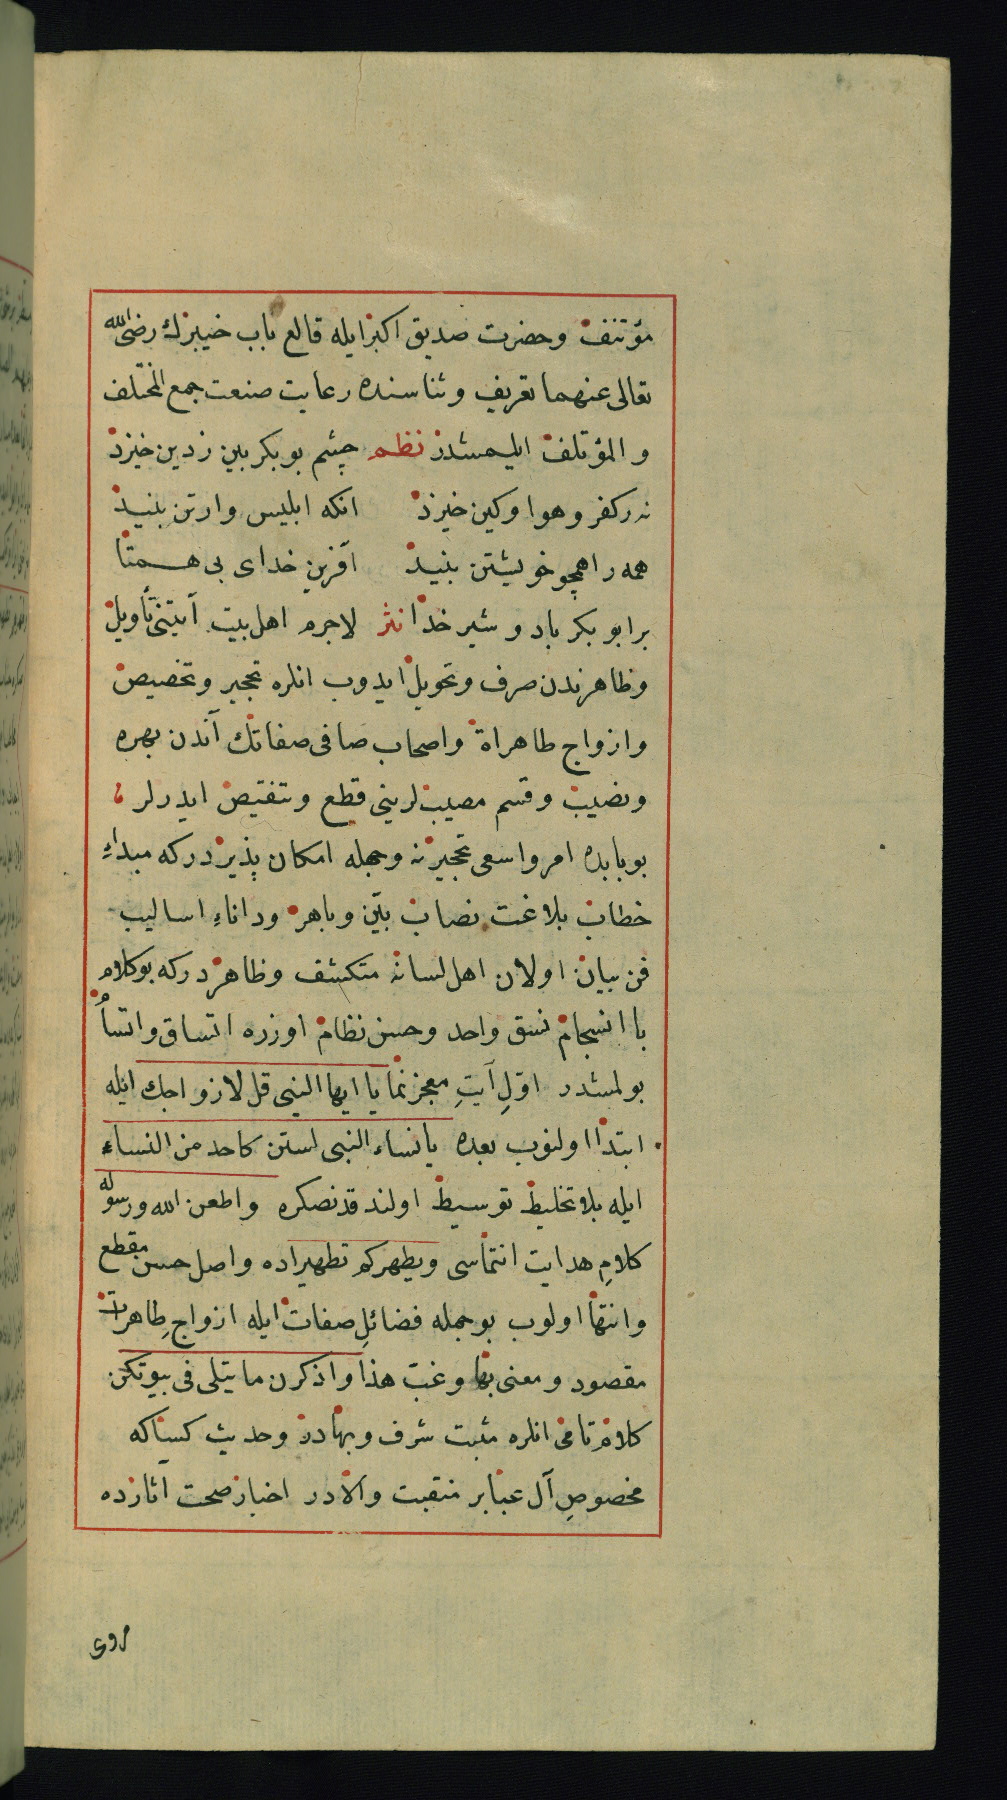 مؤتنف وحضرت صديق اكبر ايله قالع باب خيبرك رضى الله
تعالى عنهما تعريف وثناسنده رعايت صنعت جمع المختلف
والمؤتلف ايلمشدر نظم چشم بوبكربين زدين خيزد
نه ركفر وهوا وكين خيزد انكه ابليس وارتن بنيد
همه راهمچو خويشتن بنيد آفرين خداى بى همتا
برابوبكر باد وشير خدا نثر لاجرم اهل بيت آيتنى تأويل
وظاهرندن صرف وتحويل ايدوب انلره تحجير وتخصيص
وازواج طاهراة واصحاب صافى صفاتك آندن بهره
ونصيب وقسم مصيبلرينى قطع وتنقيص ايدرلر
بوبابده امر واسعى تحجير نه وجهله امكان پذيردركه مبداء
خطاب بلاغت نصاب بيّن وباهر وداناء اساليب
فن بيان اولان اهل لسانه متكشف وظاهردركه بوكلام
با انسجام نسق واحد وحسن نظام اوزره اتساق واتسأ
بولمشدر اوّلِ آيتِ معجزنما يا ايها النبى قل لازواجك ايله
ابتدا اولنوب بعده يانساء النبى لستن كاحد من النساء
ايله بلا تخليط توسيط اولندقدنصكره واطعن الله ورسوله
كلامِ هدايت انتماسى ويطهركم تطهيرا ده واصل حسن مقطع
وانتها اولوب بوجمله فضائلِ صفات ايله ازواجِ طاهرات
مقصود ومعنى بها وغبّ هذا واذكرن ما يتلى فى بيوتكن
كلام تامى انلره مثبت شرف وبهادر وحديث كساكه
مخصوصِ آل عبابر منقبت والادر اخبار صحت آثارده